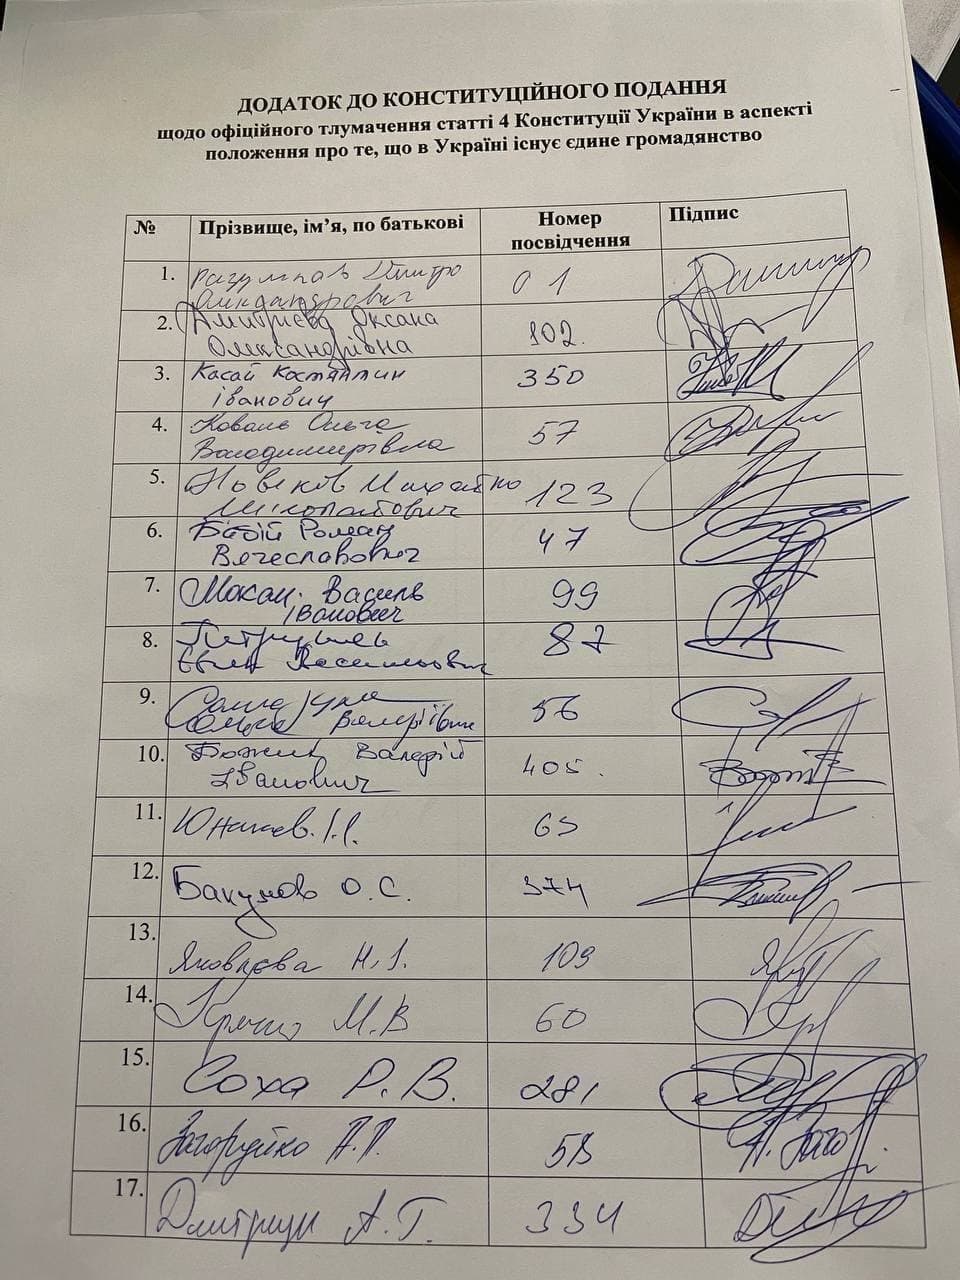 ДОДАТОК ДО КОНСТИТУЦІЙНОГО ПОДАННЯ
щодо офіційного тлумачення статті 4 Конституції України в аспекті
положення про те, що в Україні існує єдине громадянство
№ Прізвище, ім’я, по батькові Номер посвідчення Підпис
1. Разумков Дмитро
Олександрович 01
2. Дмитрієва Оксана
Олександрівна 102.
3. Касай Костянтин
Іванович 350
4. Коваль Ольга
Володимирівна 57
5. Новіков Михайло
Миколайович 123
6. Бабій Роман
Вячеславович 47
7. Мокан Василь
Іванович 99
8. Петруняк
Євген Васильович 87
9. Валеріївна 56
10. Божик Валерій
Іванович 405.
11. Юнаков І.І. 63
12. Бакумов О.С. 374
13. Яковлєва Н.І. 109
14. М.В 60
15. Соха Р.В. 281
16. Загоруйко А.Л. 58
17. А.Г. 334